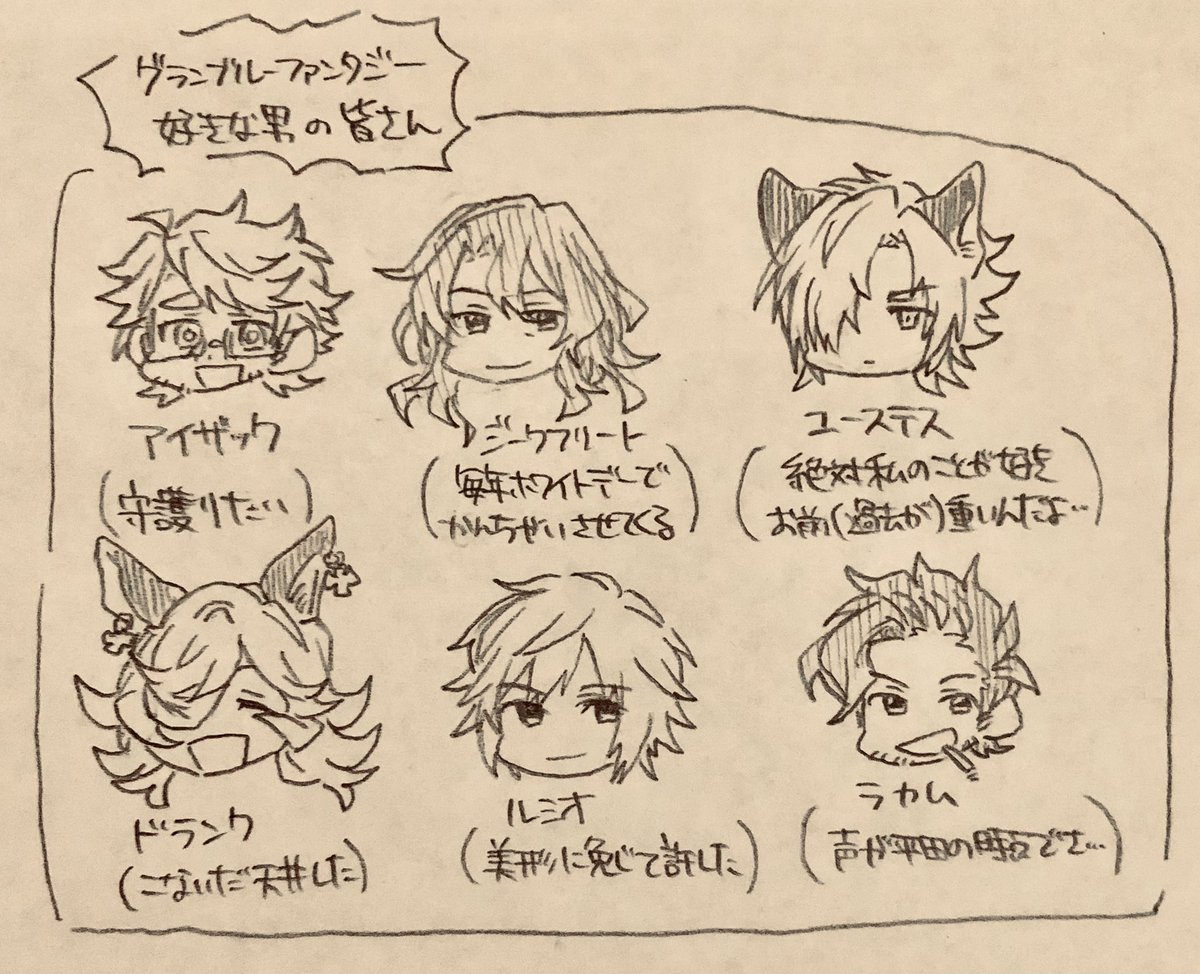 グランブルーファンタジー
好きな男の皆さん
アイザック
(守護りたい)
ジークフリート
(毎年ホワイトデーで
かんちがいさせてくる)
ユーステス
(絶対私のことが好き
お前(過去が)重いんだよ…)
ドランク
(こないだ天井した)
ルミオ
(美形に免じて許した)
ラカム
(声が平田の時点でさ…)